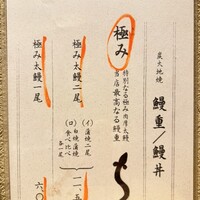 炭火地焼 鰻重/鰻丼
極み
特別なる極み肉厚太鰻
当店最高なる鰻重
極み太鰻二尾
(イ)蒲焼二尾
(ロ)白焼蒲焼食べ比べ各一尾
二一、五
極み太鰻一尾
六〇